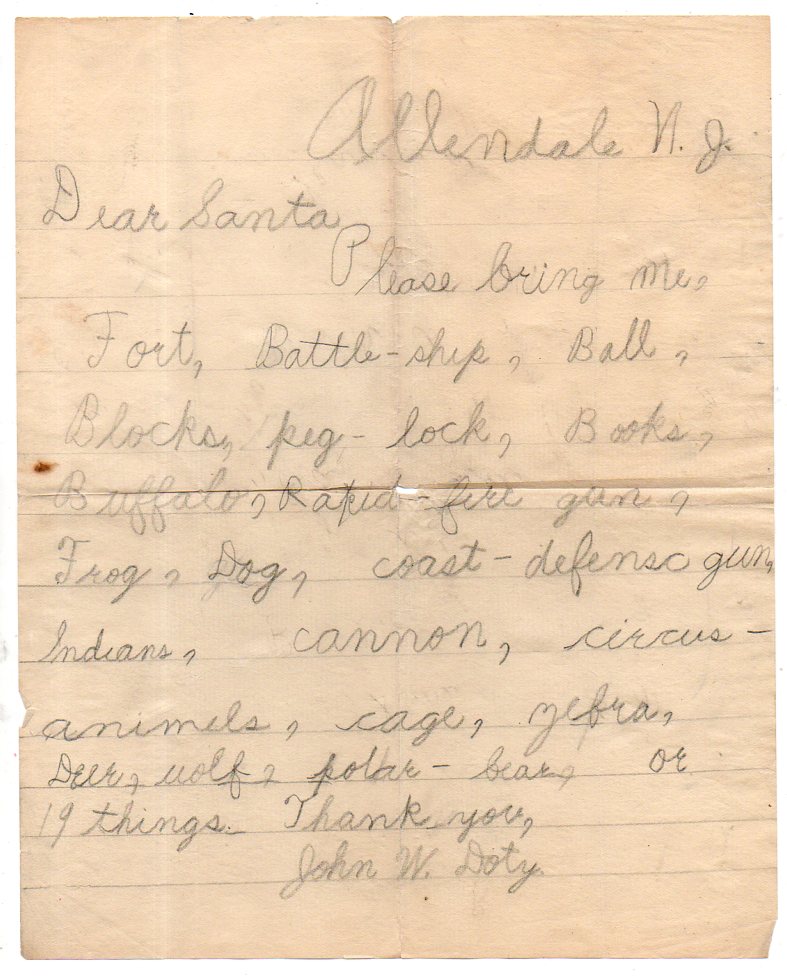 Allendale N. J.
Dear Santa
Please bring me,
Fort, Battle-ship, Ball,
Blocks, peg-lock, Books,
Buffalo, Rapid-fire gun,
Frog, Dog, coast-defense gun,
Indians, cannon, circus-
animels, cage, zebra,
Deer, wolf, polar-bear, or
19 things. Thank you,
John W. Doty.